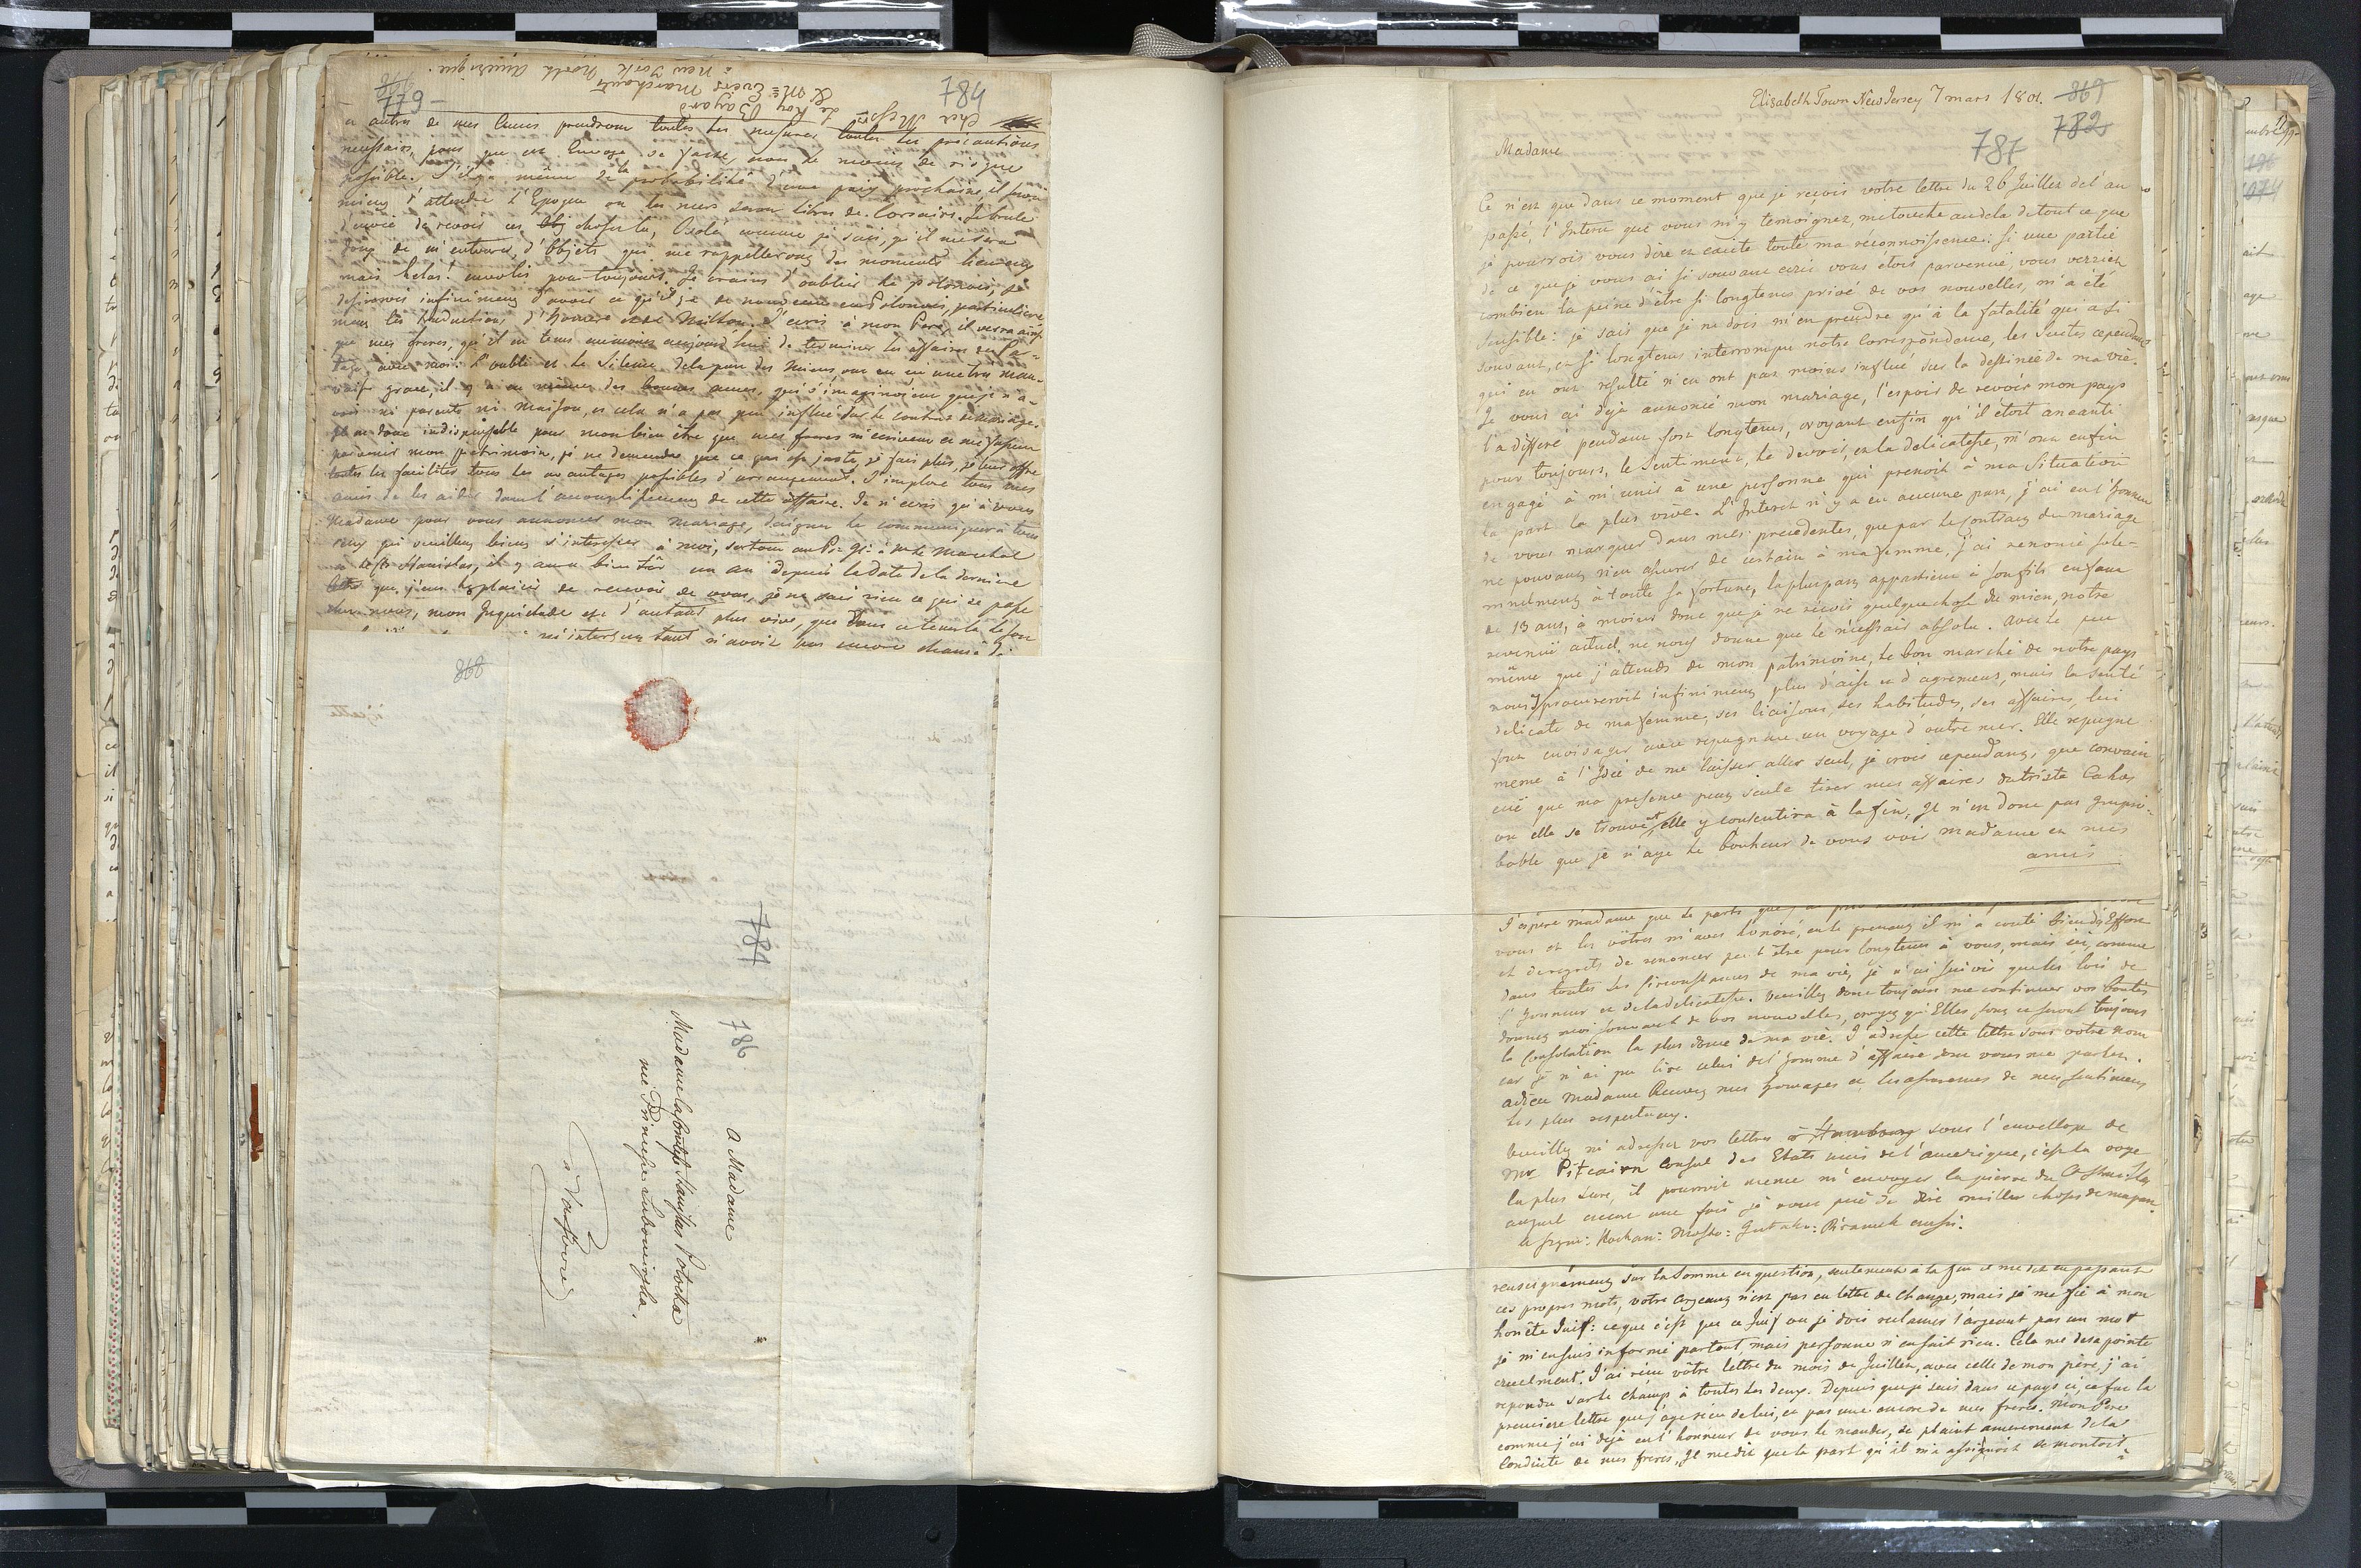 784
868
779
Cher Messrs
Le Roy Bayard
& Mc Evers Marchants
à New York North Amérique.
et autres de mes amis prendront toutes les mesures toutes les précautions
possible. S'il y a même de la probabilité d'une paix prochaine, il seroit
mieux d'attendre l'Epoque où les mers seront libres de Corsaires. Je brule
d'envie de revoir ces choses là, Isolé comme je suis, qu'il me sera
doux de m'entourer d'objets qui me rappelleront des moments heureux
mais helas! envolés pour toujours. Je crains d'oublier le polonois, je
desirerois infiniment d'avoir ce qu'il y a de nouveau en Polonois, particuliere-
ment les traductions d'Homere et de Milton. J'ecris à mon Pere, il verra ainsi
que mes freres, qu'il est tems aujourd'hui de terminer les affaires
avec moi: l'oubli et le Silence de la part des miens ont eu une tres mau-
vaise grace, il y a eu même des bonnes ames, qui s'imaginoient que je n'a-
vois ni parents ni maison, et cela n'a pas peu influé sur le contrat de mariage.
Il est donc indispensable pour mon bien être que mes freres m'ecrivent et me fassent
parvenir mon patrimoine, je ne demande que ce qui est juste, je fais plus, je leur offre
toutes les facilités tous les avantages possibles d'arrangement. J'implore tous mes
amis de les aider dans l'accomplissement de cette affaire. Je n'ecris qu'à vous
Madame pour vous annoncer mon mariage, daignez le communiquer à tous
ceux qui veuillent bien s'interesser à moi, surtout au Pce Gl: à Mr le Marechal
a Cte Stanislas, il y aura bientôt un an depuis la date de la derniere
lettre que j'eus le plaisir de recevoir de vous, je ne sais rien ce qui se passe
chez vous, mon Inquietude est d'autant plus vive, que dans
868
784
786
A Madame
Madame la Comtesse Stanislas Potocka
née Princesse Lubomirska.
a Varsovie
Elisabeth Town New Jersey 7 mars 1801.
869
782
787
Madame
Ce n'est que dans ce moment que je reçois votre lettre du 26 Juillet de l'an
passé, l'Interet que vous m'y temoignez, me touche au dela de tout ce que
je pourrois vous dire et excite toute ma réconnoissence: si une partie
de ce que je vous ai si souvent ecrit vous étoit parvenüe, vous verriez
combien la peine d'être si longtems privé de vos nouvelles, m'a été
sensible: je sais que je ne dois m'en prendre qu'à la fatalité qui a si
souvent, et si longtems interrompu notre Correspondence, les Suites cependant
qui en ont resulté n'en ont pas moins influé sur la destinée de ma vie.
Je vous ai déjà annoncé mon mariage, l'espoir de revoir mon pays
l'a differé pendant fort longtems, croyant enfin qu'il étoit aneanti
pour toujours, le Sentiment, le devoir, et la delicatesse, m'ont enfin
engagé à m'unir à une personne qui prenoit à ma Situation
la part la plus vive. L'Interet n'y a eu aucune part, j'ai eu l'honneur
de vous marquer dans mes precedentes, que par le contract du mariage
ne pouvant rien assurer de certain à ma femme, j'ai renoncé sole-
mnelment à toute sa fortune, la pluspart appartient à son fils enfant
de 13 ans, a moins donc que je ne reçois quelque chose du mien, notre
revenüe actuel, ne nous donne que le nécessaire absolu. Avec le peu
même que j'attends de mon patrimoine, le bon marché de notre pays
nous procureroit infiniment plus d'aise et d'agremens, mais la santé
delicate de ma femme, ses liaisons, ses habitudes, ses affaires, lui
font envisager avec repugnance un voyage d'outre mer. Elle repugne
meme à l'Idée de me laisser aller seul, je crois cependant, que convain
cüe que ma presence peut seule tirer mes affaires du triste Cahos
ou elle se trouvent elle y consentira à la fin, Il n'est donc pas Impro-
bable que je n'aye le bonheur de vous voir Madame et mes
amis
J'espere Madame que le parti que
vous et les vôtres m'avez honoré, en le prenant il m'a couté bien d'Effort
et de regrets de renoncer peut être pour longtems à vous, mais ici, comme
dans toutes les circonstances de ma vie, je n'ai suivis que les lois de
l'honneur et de la delicatesse. Veuillez donc toujours me continuer vos bontés
donnez moi souvent de vos nouvelles, croyez qu'Elles sont et seront toujours
la Consolation la plus douce de ma vie. J'adresse cette lettre sous votre nom
car je n'ai pu lire celui de l'homme d'affaire dont vous me parlez.
adieu Madame Recevez mes homages et les assurances de mes sentimens
les plus respectueux.
Veuillez m'adresser vos lettres à Hambourg sous l'envellope de
Mr Pitcairn Consul des Etats unis de l'amerique, c'est la voye
la plus sure, il pourroit meme m'envoyer la pierre du Cte Stanislas
auquel encore une fois je vous prie de dire mille choses de ma part
renseignement sur la Somme en question, seulement à la fin il me dit en passant
ces propres mots, votre Argeant n'est pas en lettre de change, mais je me fie à mon
honête Juif: ce que c'est que ce Juif ou je dois reclamer l'argeant pas un mot
je m'en suis informé partout, mais personne n'en sait rien. Cela me desapointe
cruelment. J'ai reçu vôtre lettre du mois de Juillet, avec celle de mon père, j'ai
repondu sur le champ à toutes les deux. Depuis que je suis dans ce pays ci, ce fut la
premiere lettre que j'aye reçu de lui, et pas une encore de mes freres. Mon Pere
comme j'ai déjà eu l'honneur de vous le mander, se plaint amerement de la
Conduite de mes freres, Il me dit que la part qu'il m'a assignoit se montoit